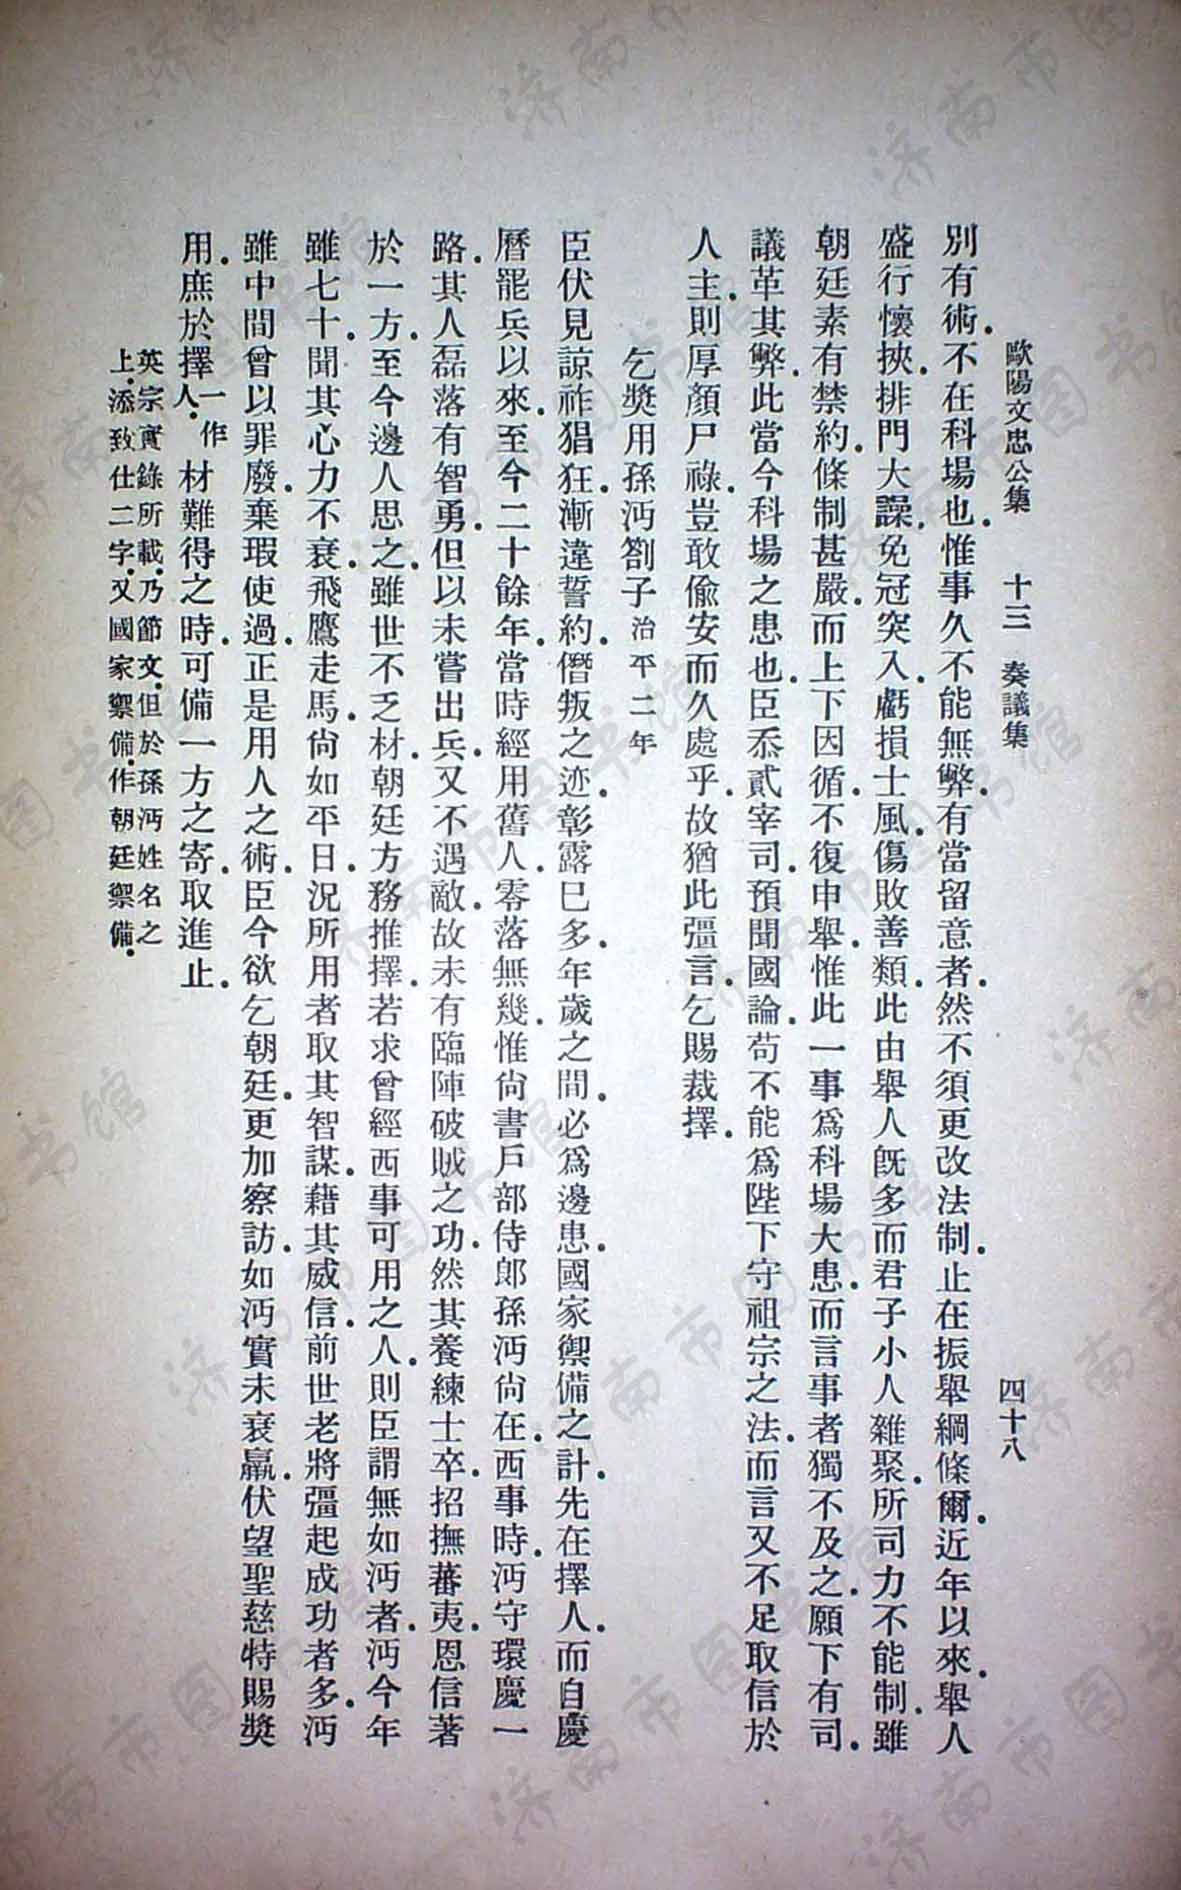 歐陽文忠公集　十三　奏議集　四十八
別有術.不在科場也.惟事久不能無弊.有當留意者.然不須更改法制.止在振舉綱條爾.近年以來.舉人
盛行懷挾.排門大譟.免冠突入.虧損士風.傷敗善類.此由舉人旣多.而君子小人雜聚.所司力不能制.雖
朝廷素有禁約.條制甚嚴.而上下因循.不復申舉.惟此一事爲科場大患.而言事者獨不及之.願下有司.
議革其弊.此當今科場之患也.臣忝貳宰司.預聞國論.苟不能爲陛下守祖宗之法.而言又不足取信於
人主.則厚顏尸祿.豈敢偷安而久處乎.故猶此彊言.乞賜裁擇.
乞獎用孫沔劄子治平二年
臣伏見諒祚猖狂.漸違誓約.僭叛之迹.彰露巳多.年歲之間.必爲邊患.國家禦備之計.先在擇人.而自慶
曆罷兵以來.至今二十餘年.當時經用舊人.零落無幾.惟尙書戶部侍郞孫沔尙在.西事時.沔守環慶一
路.其人磊落有智勇.但以未嘗出兵.又不遇敵.故未有臨陣破賊之功.然其養練士卒.招撫蕃夷.恩信著
於一方.至今邊人思之.雖世不乏材.朝廷方務推擇.若求曾經西事可用之人.則臣謂無如沔者.沔今年
雖七十.聞其心力不衰.飛鷹走馬.尙如平日.況所用者取其智謀.藉其威信.前世老將彊起成功者多.沔
雖中間曾以罪廢.棄瑕使過.正是用人之術.臣今欲乞朝廷.更加察訪.如沔實未衰羸.伏望聖慈特賜獎
用.庶於擇人.一作材難得之時.可備一方之寄.取進止.
英宗實錄所載.乃節文.但於孫沔姓名之
上.添致仕二字.又國家禦備.作朝廷禦備.
济南市图书馆